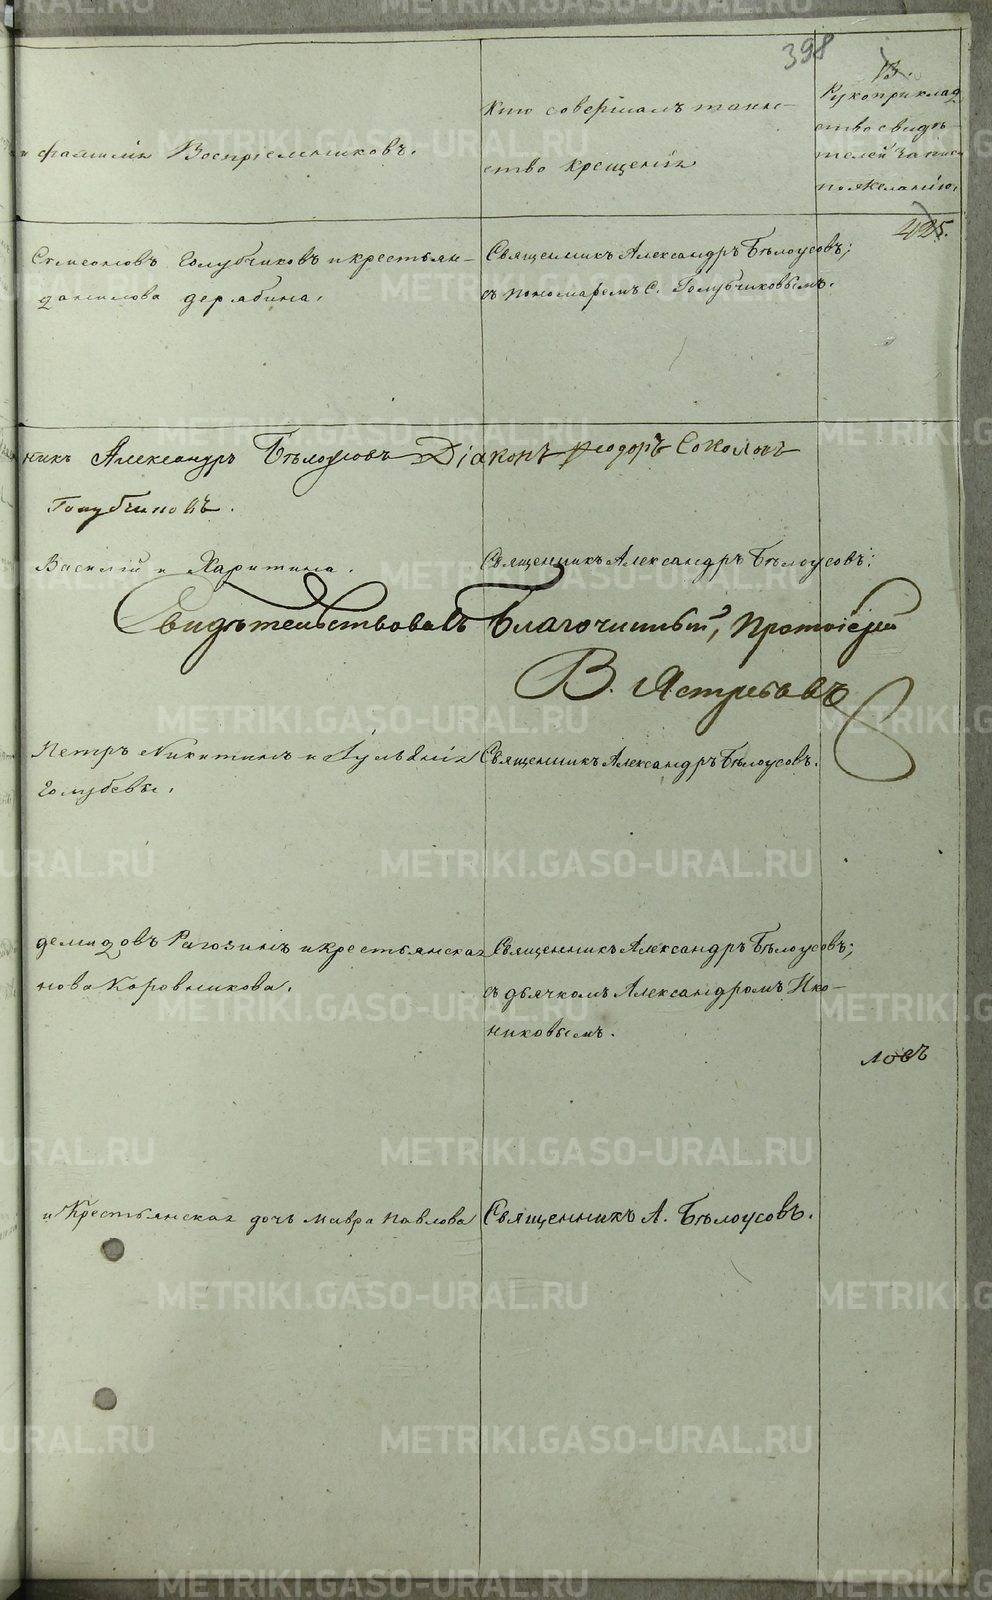 398
13.
и фамилiи Воспрiемниковъ.
Кто совершалъ таин-
ство крещенiя
Рукоприклад
ство свидѣ-
телей записи
по желанiю.
425.
Симеоновъ Голубчиковъ и крестьян-
Данилова Дерябина.
Священникъ Александръ Бѣлоусовъ;
съ пономаремъ С. Голубчиковымъ.
никъ Александръ Бѣлоусовъ Дiаконъ Ѳеодоръ Соколовъ
Голубчиковъ.
Василiй и Харитина.
Священникъ Александръ Бѣлоусовъ;
Свидѣтельствовалъ Благочинный, Протоiерей
В. Ястребовъ
Петръ Никитинъ и Iулiанiя
Голубевы.
Священникъ Александръ Бѣлоусовъ.
Демидовъ Рагозинъ и крестьянская
нова Коровникова.
Священникъ Александръ Бѣлоусовъ;
съ дьячкомъ Александромъ Ико-
никовымъ.
ловъ
и Крестьянская дочь Мавра Павлова
Священникъ А. Бѣлоусовъ.
METRIKI.GASO-URAL.RU